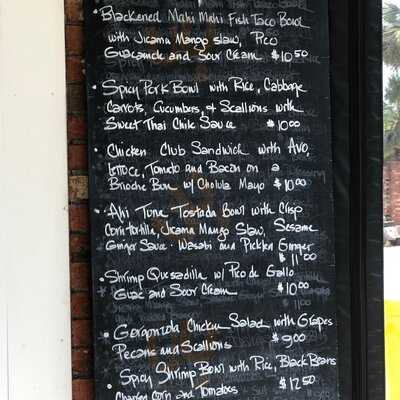 • Blackened Mahi Mahi Fish Taco Bowl
with Jicama Mango slaw, Pico
Guacamole and Sour Cream $10.50
• Spicy Pork Bowl with Rice, Cabbage
Carrots, Cucumbers, & Scallions with
Sweet Thai Chile Sauce $10.00
• Chicken Club Sandwich with Avo,
Lettuce, Tomato and Bacon on a
Brioche Bun w/ Cholula Mayo $10.00
• Ahi Tuna Tostada Bowl with Crisp
Corn tortilla, Jicama Mango Slaw, Sesame
Ginger Sauce. Wasabi and Ginger
$11.00
• Shrimp Quesadilla w/ Pico de Gallo
Guac and Sour Cream $10.00
• Gorgonzola Chicken Salad with Grapes
Pecans and Scallions $9.00
• Spicy Shrimp Bowl with Rice, Black Beans
Corn and Tomatoes $12.50